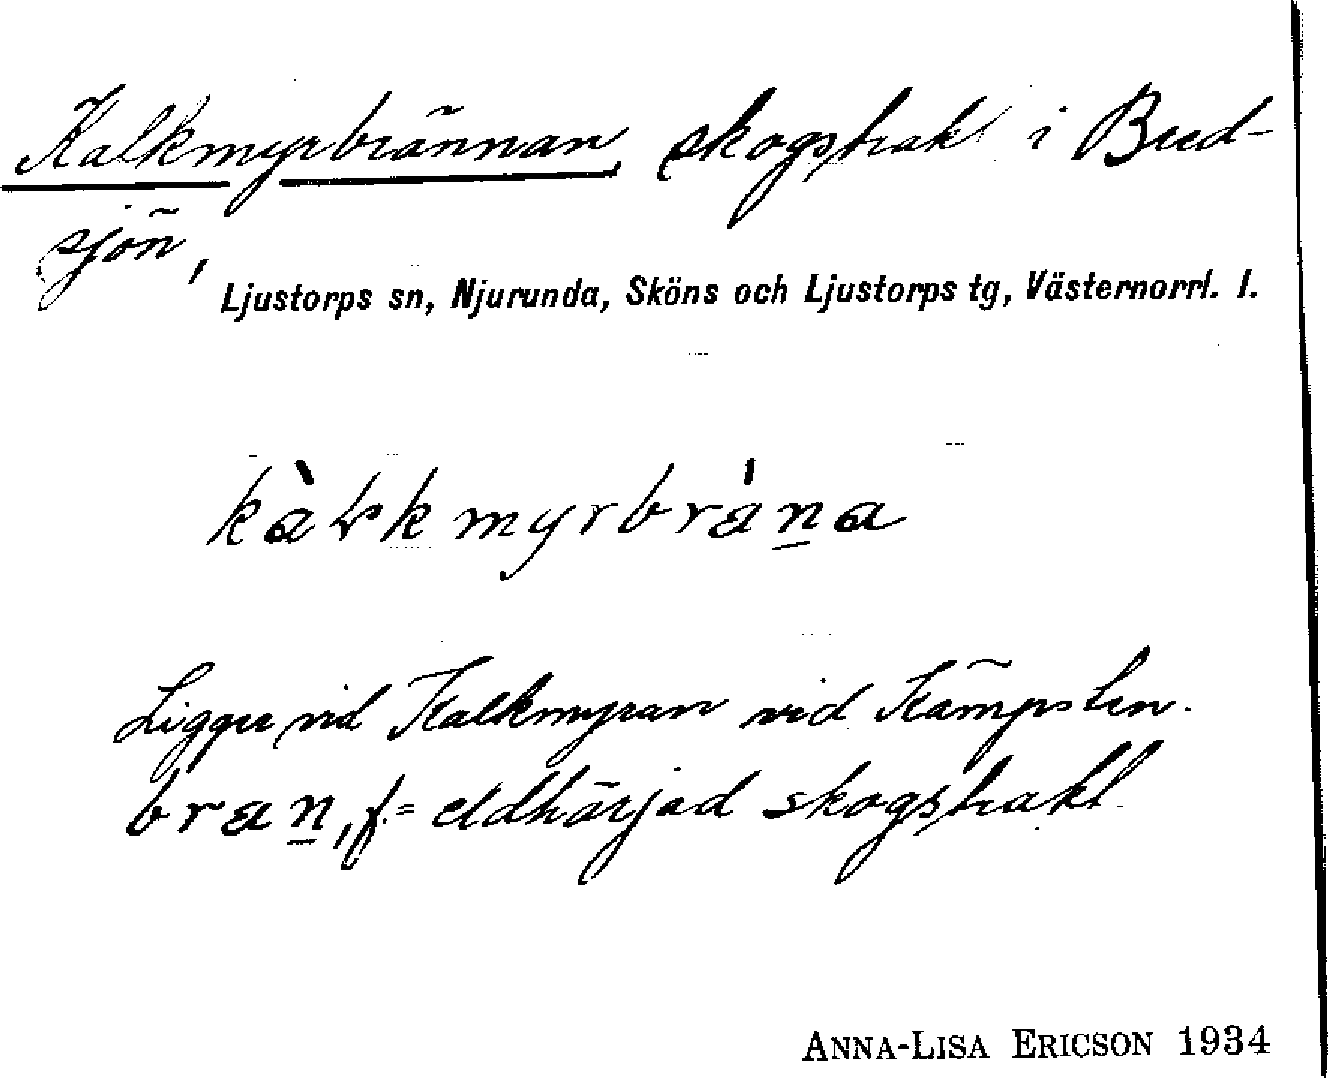 Kalkmyrbrännan, skogstrakt i Bred-
sjön,
Ljustorps sn, Njurunda, Sköns och Ljustorps tg, Västernorrl. l.
Ligger vid Kalkmyran vid Kämpsten.
f. = eldhärjad skogstrakt.
ANNA-LISA ERICSON 1934